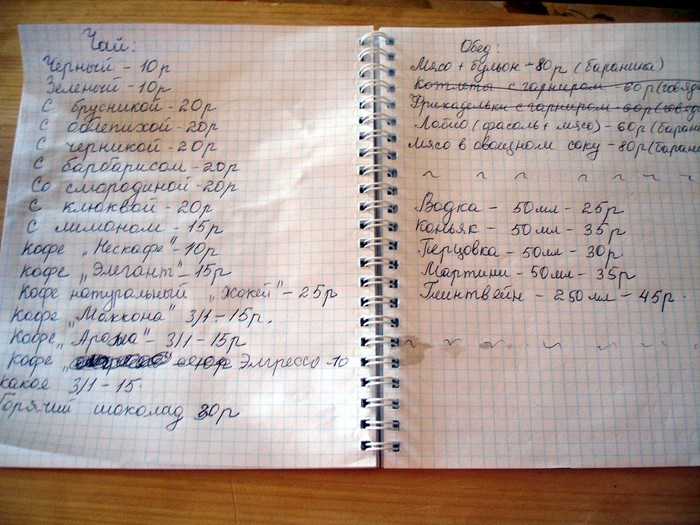 Чай:
Черный - 10р
Зеленый - 10р
С брусникой - 20р
С облепихой - 20р
С черникой - 20р
С барбарисом - 20р
Со смородиной - 20р
С клюквой - 20р
С лимоном - 15р
Кофе "Нескафе" - 10р
Кофе "Элегант" - 15р
Кофе натуральный "Жокей" - 25р
Кофе "Маккона" 3/1 - 15р.
Кофе "Арома" - 3/1 - 15р
Кофе " Элгрессо - 10
какое 3/1 - 15.
Горячий шоколад 30р
Обед:
Мясо + бульон - 80р (баранина)
Котлета с гарниром - 60р (говяд
Фрикадельки с гарниром - 60р (говяд
Лобио (фасоль + мясо) - 60р (баран
Мясо в овощном соку - 80р (барани
Водка - 50мл - 25р
Коньяк - 50мл - 35р
Перцовка - 50мл - 30р.
Мартини - 50мл - 35р
Глинтвейн - 250мл - 45р.